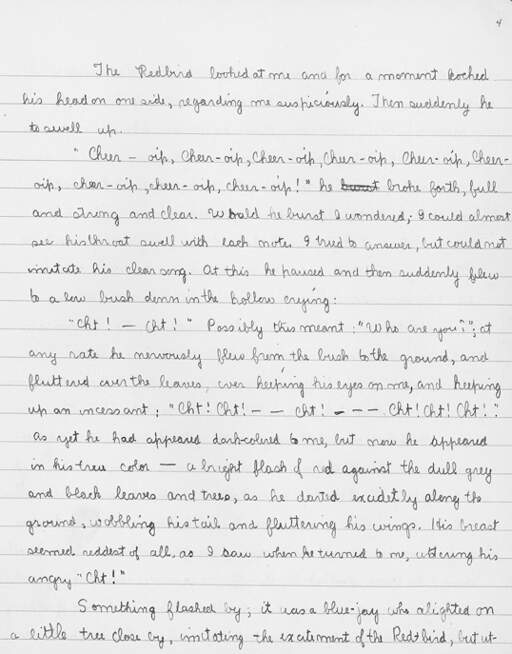 4
The Redbird looked at me and for a moment cocked
his head on one side, regarding me suspiciously. Then suddenly he
to swell up.
"Cheer – oip, Cheer-oip, Cheer-oip, Cheer-oip, Cheer-oip, Cheer-
oip, cheer-oip, cheer-oip, cheer-oip!" he burst broke forth, full
and strong and clear. Would he burst I wondered; I could almost
see his throat swell with each note. I tried to answer, but could not
imitate his clear song. At this he paused and then suddenly flew
to a low bush down in the hollow crying:
"Cht! – Cht!" Possibly this meant: "Who are you?"; at
any rate he nervously flew from the bush to the ground, and
fluttered over the leaves, ever keeping his eyes on me, and keeping
up an incessant; "Cht! Cht! – – cht! – – – Cht! Cht! Cht!".
As yet he had appeared dark-colored to me, but now he appeared
in his true color — a bright flash of red against the dull grey
and black leaves and trees, as he darted excitedly along the
ground, wobbling his tail and fluttering his wings. His breast
seemed reddest of all, as I saw when he turned to me, uttering his
angry "Cht!"
Something flashed by; it was a blue-jay who alighted on
a little tree close by, imitating the excitement of the Redbird, but ut-